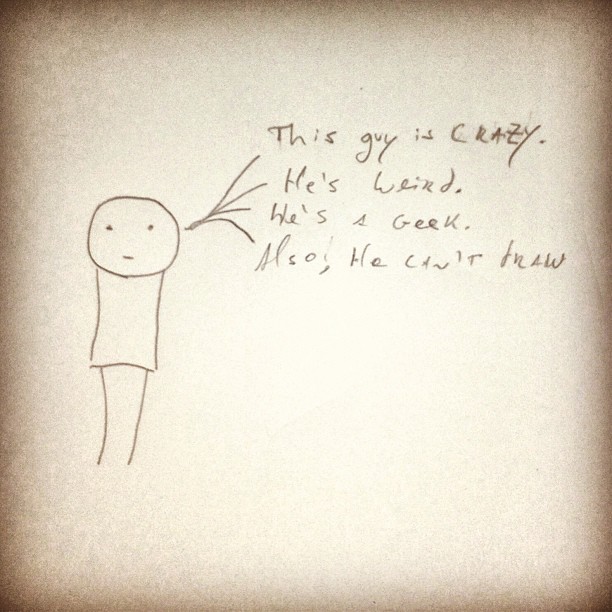 This guy is CRAZY.
He's weird.
He's a Geek.
Also, He can't draw